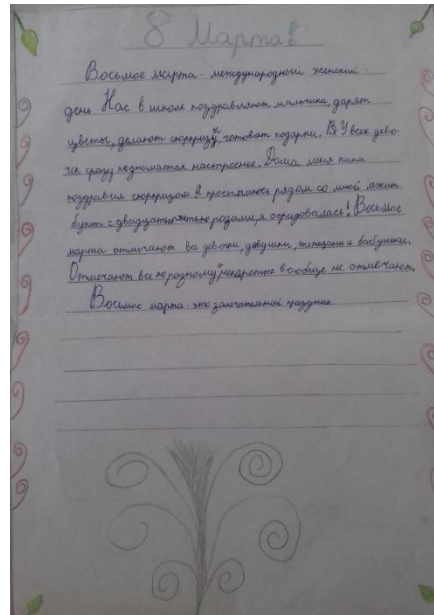 8 Марта
Восьмое марта - международный женский -
день. Нас в школе поздравляют мальчики, дарят
цветы, делают сюрпризы, готовят подарки. В У всех дево-
чек сразу поднимается настроенье. Дома меня папа
поздравил сюрпризом. Я просыпаюсь рядом со мной лежит
букет с двадцатью розами, я обрадовалась! Восьмое
марта отмечают все девочки, девушки, женщины и бабушки.
Отмечают все по разному, некоторые вообще не отмечают.
Восьмое марта - это замечательный праздник